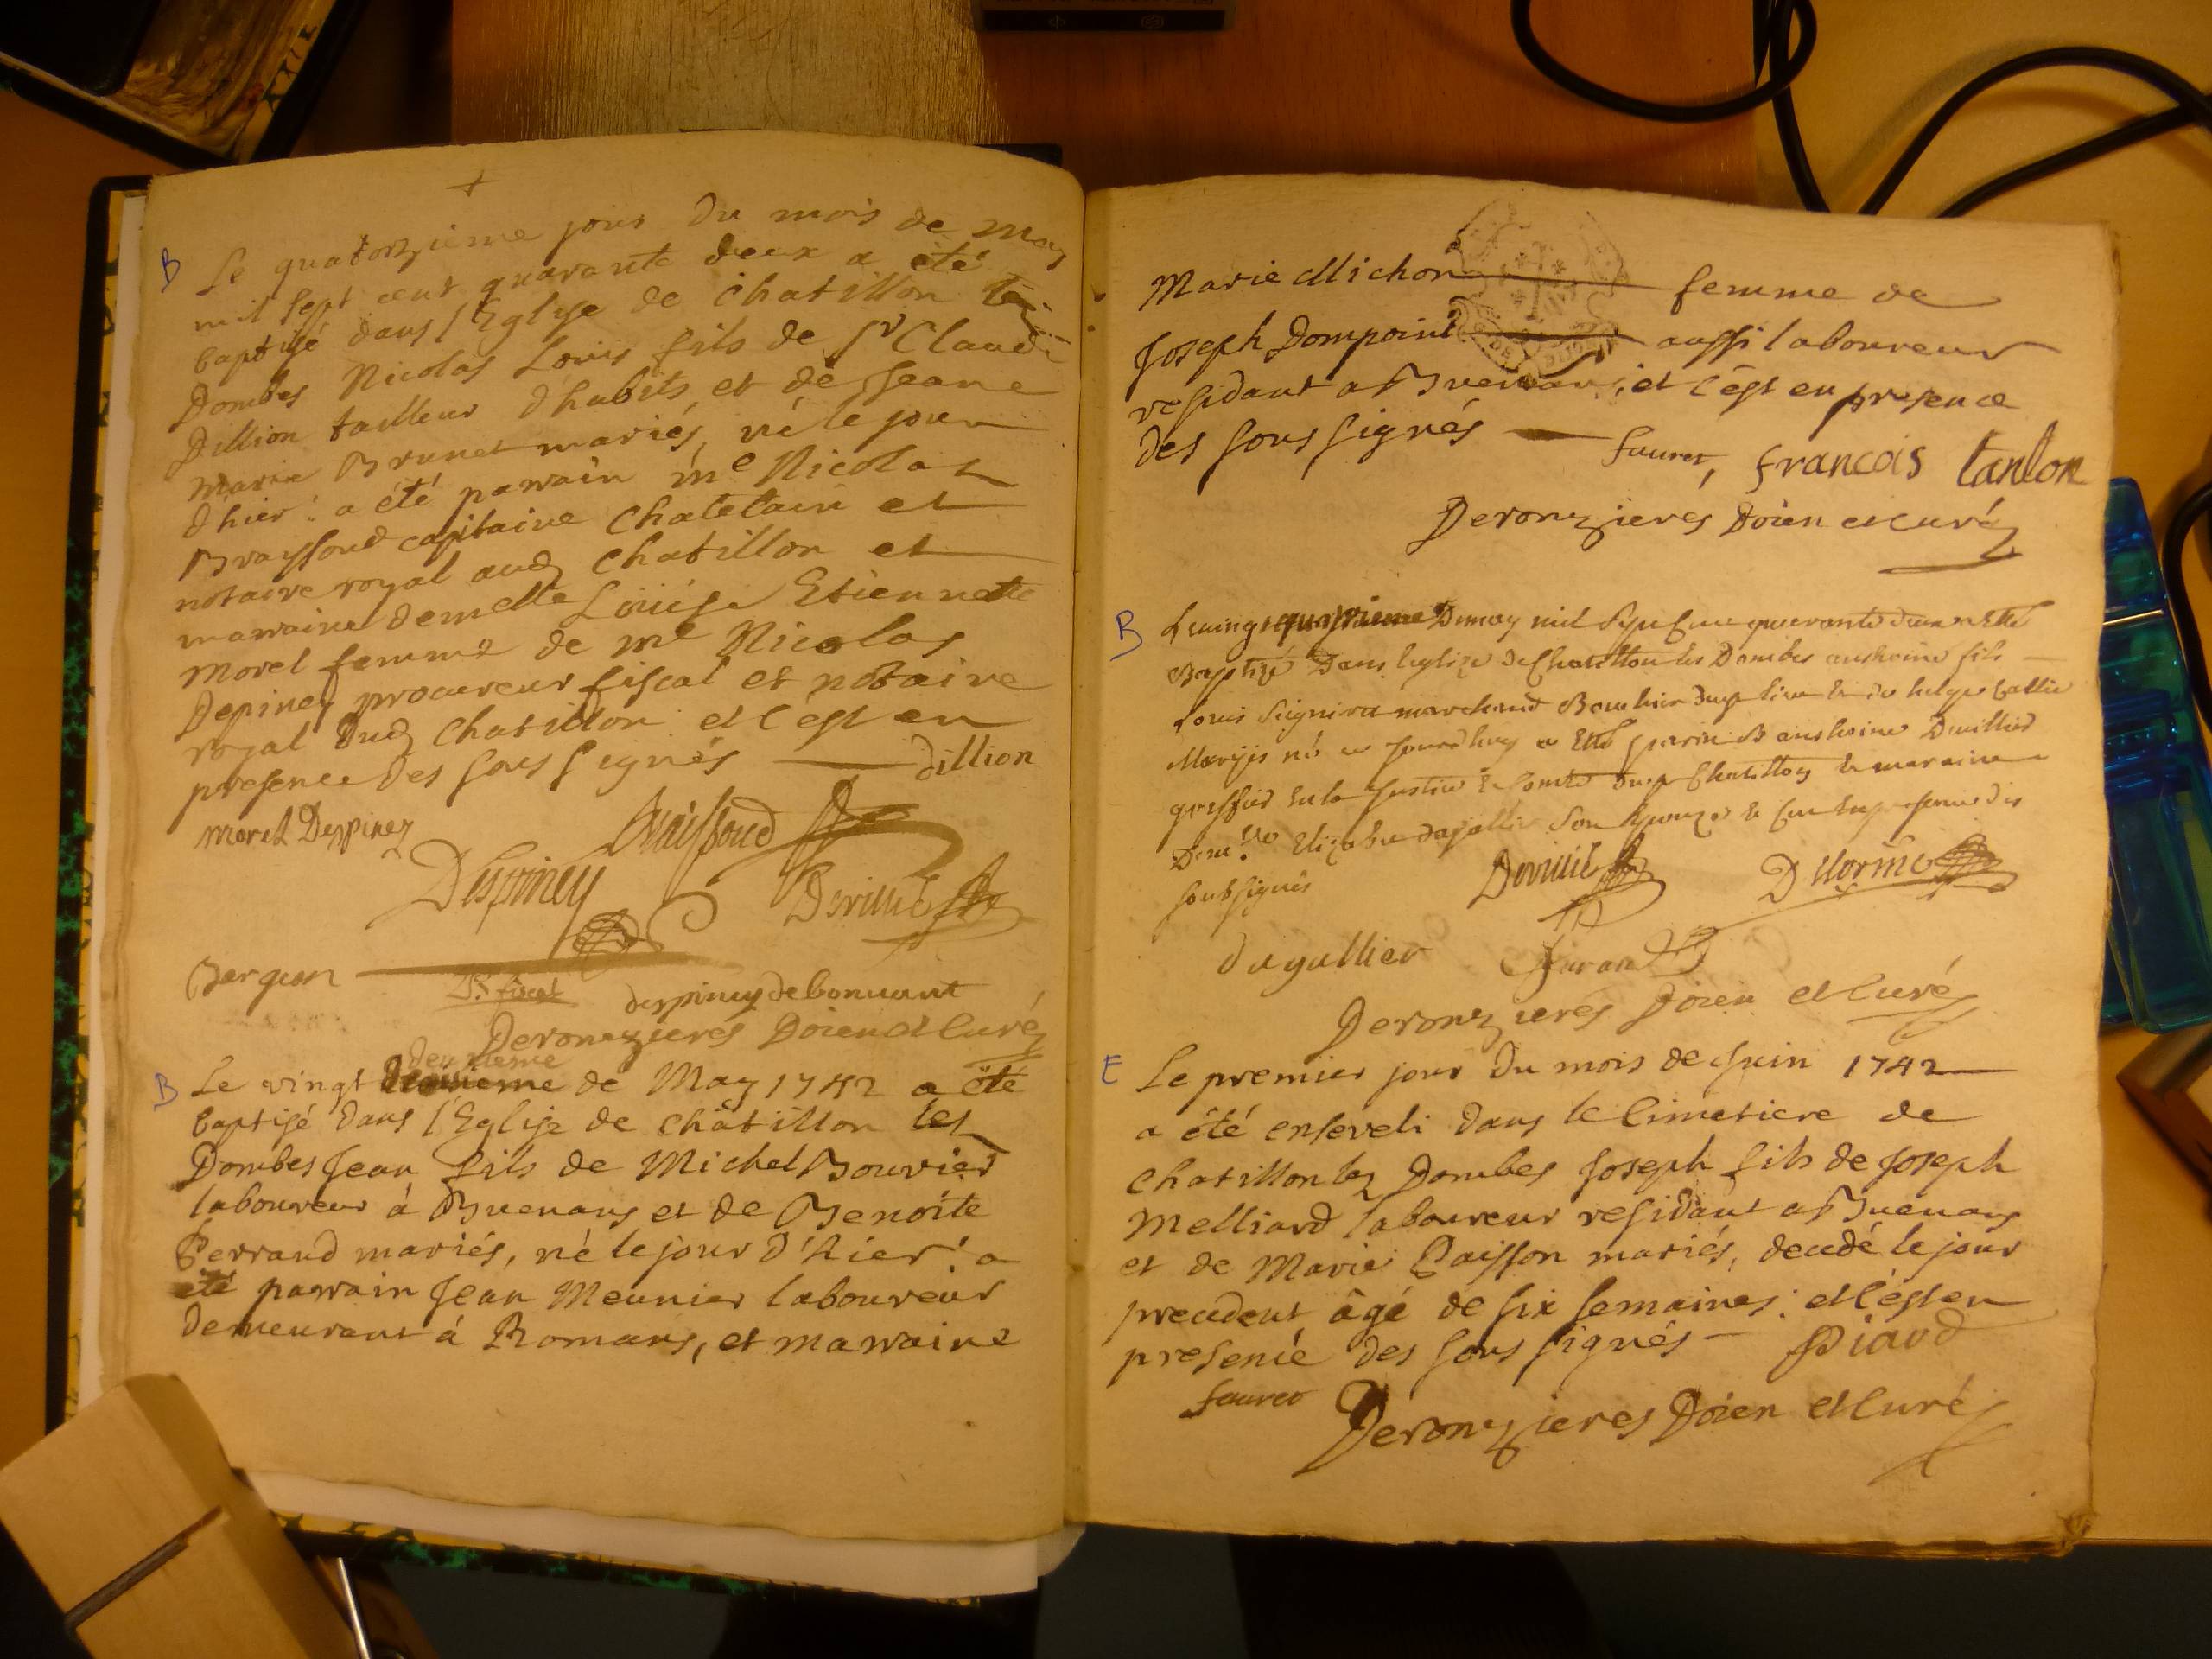 B Le quatorzieme jour Du mois de May
mil sept cent quarante deux a été
baptisé dans l'Eglise de Chatillon les
Dombes Nicolas Louis fils de Sr Claude
Dillion tailleur d'habits, et de Jeane
Marie Brunet mariés, né le jour
d'hier: a été parrain me Nicolas
Brayssoud capitaine Chatelain et
notaire royal aud Chatillon et
marraine demelle Loüise Etiennette
Morel femme de me Nicolas
Depiney procureur fiscal et notaire
royal dud Chatillon et c'est en
presence des sous signés dillion
Morel Despiney
Braissoud
Despiney
Deville
Bergeon
Pr. fiscal despiney de bonnant
Deronzieres Doien et Curé
deuxieme
B Le vingt de May 1742 a été
baptisé dans l'Eglise de châtillon les
Dombes Jean fils de Michel Bouvier
laboureur à Buenans et de Benoite
Perraud mariés, né le jour d'hier: a
été parrain Jean Meunier laboureur
demeurant à Romans, et marraine
Marie Michon femme de
Joseph Dompoint aussi laboureur
residant a Buenans, et c'est en presence
des sous signés fauret, francois tanton
Deronzieres Doien et curé
B Le vingt Demay mil Sept Cent quarante deux a Esté
Baptizé Dans leglize de Chatillon les Dombes anthoine fils
Louis marchand
Mariés né ce Jourdhuy a Esté parin Sr anthoine Deville
greffier En la Justice & Comté Chatillon & maraine
Dem.lle Son Epouze & Presence des
soubsignés
Deville
Delorme
dagallier
Deronzieres Doien et Curé
E Le premier jour du mois de Juin 1742
a été enseveli dans le Cimetiere de
Chatillon les Dombes Joseph fils de Joseph
Melliard laboureur residant a Buenans
et de Marie Paisson mariés, decedé le jour
precedent âgé de six semaines: et c'est en
presence des sous signés Piaud
fauret
Deronzieres Doien et Curé